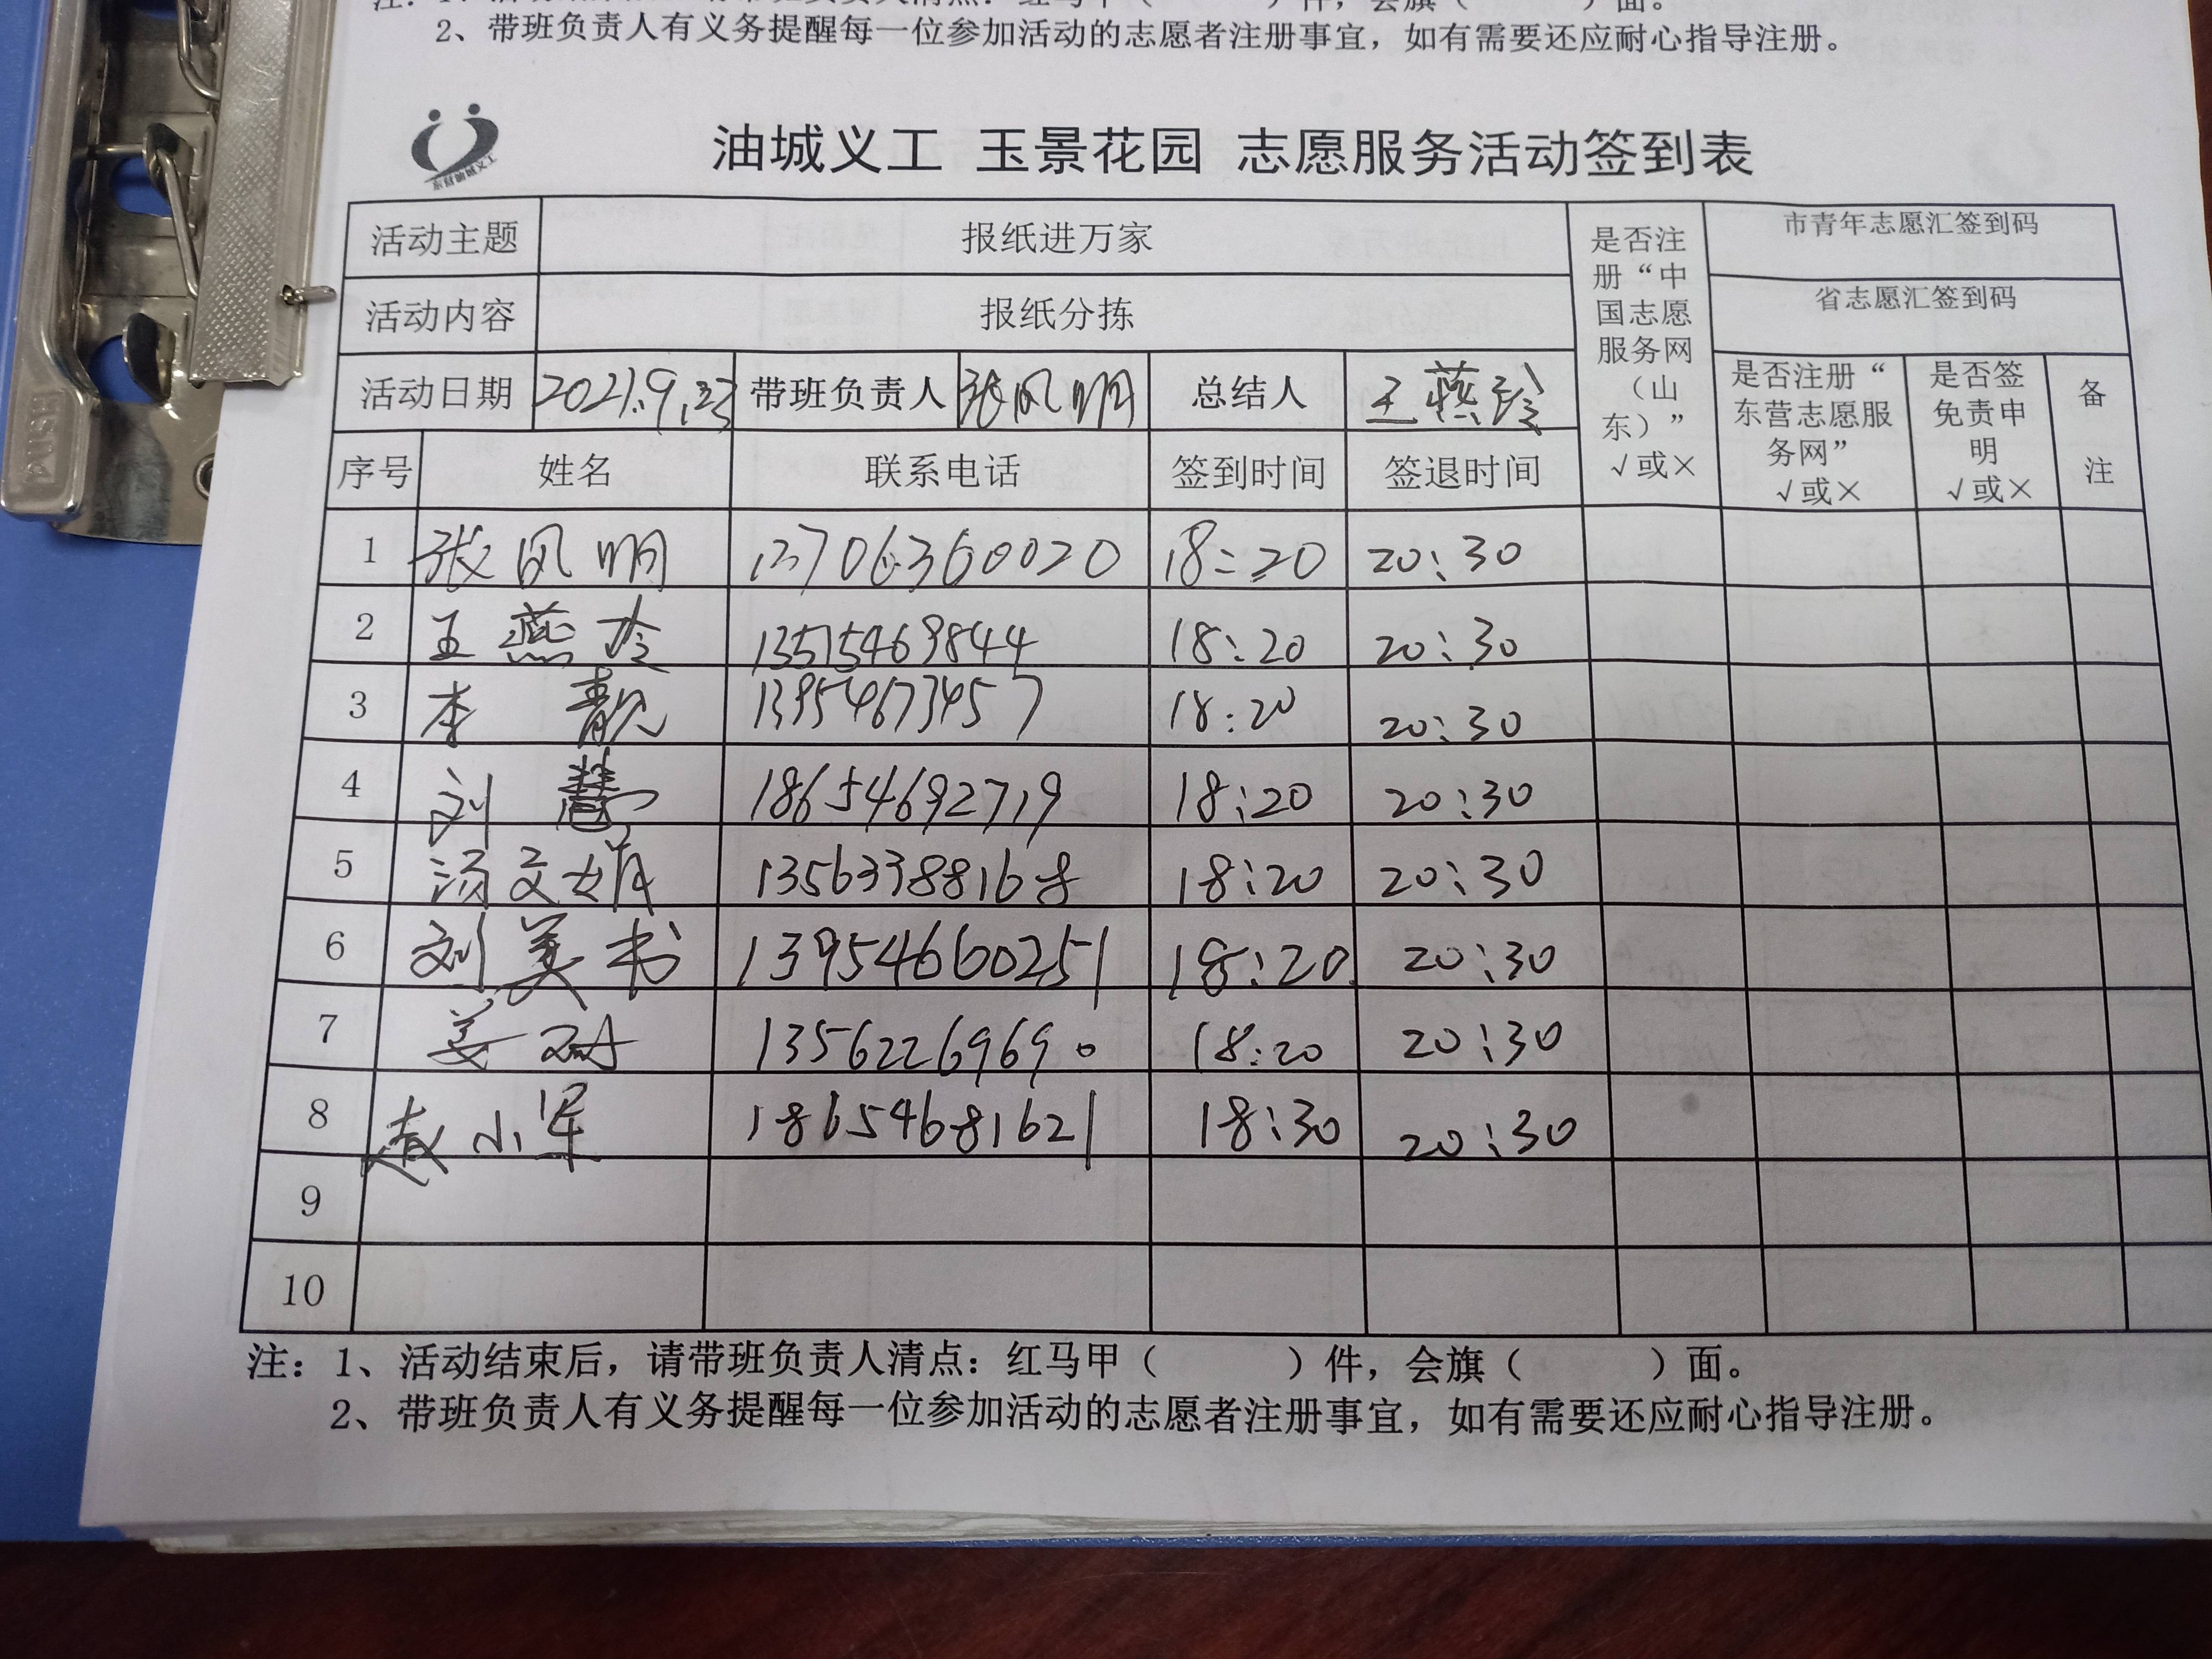 2、带班负责人有义务提醒每一位参加活动的志愿者注册事宜，如有需要还应耐心指导注册。
油城义工 玉景花园 志愿服务活动签到表
活动主题 报纸进万家 是否注册“中国志愿服务网（山东）” √或× 市青年志愿汇签到码
活动内容 报纸分拣 省志愿汇签到码
活动日期 2021.9.23 带班负责人 张凤明 总结人 王燕玲 是否注册“东营志愿服务网” √或× 是否签免责申明 √或× 备注
序号 姓名 联系电话 签到时间 签退时间
1 张凤明 13706360020 18:20 20:30
2 王燕玲 13515469844 18:20 20:30
3 李靓 13954673457 18:20 20:30
4 刘慧 18654692719 18:20 20:30
5 汤文娟 13563388168 18:20 20:30
6 刘美书 13954660251 18:20 20:30
7 姜 13562269690 18:20 20:30
8 赵小军 18654681621 18:30 20:30
9
10
注：1、活动结束后，请带班负责人清点：红马甲（ ）件，会旗（ ）面。
2、带班负责人有义务提醒每一位参加活动的志愿者注册事宜，如有需要还应耐心指导注册。